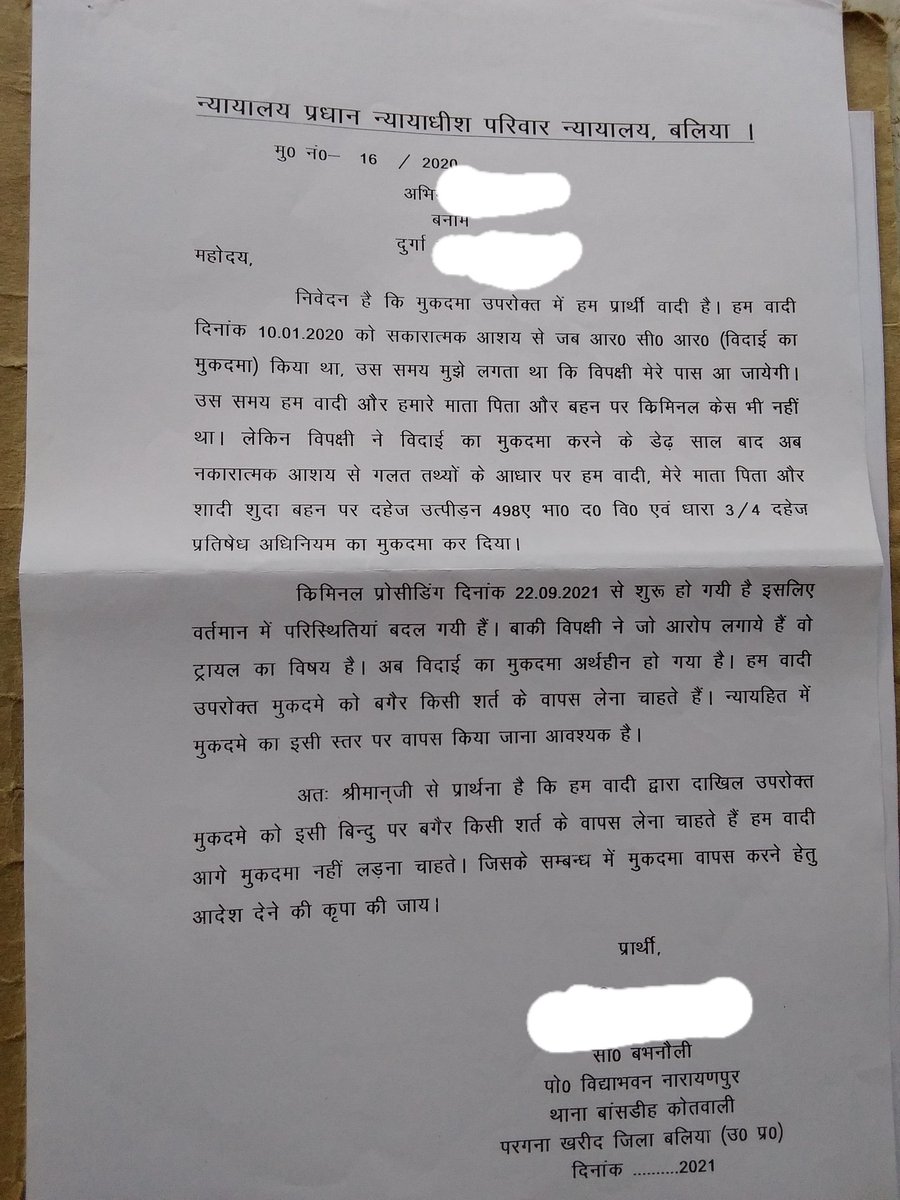 न्यायालय प्रधान न्यायाधीश परिवार न्यायालय, बलिया ।
मु0 नं0– 16 / 2020
अभि
बनाम
दुर्गा
महोदय,
निवेदन है कि मुकदमा उपरोक्त में हम प्रार्थी वादी है। हम वादी
दिनांक 10.01.2020 को सकारात्मक आशय से जब आर0 सी0 आर0 (विदाई का
मुकदमा) किया था, उस समय मुझे लगता था कि विपक्षी मेरे पास आ जायेगी।
उस समय हम वादी और हमारे माता पिता और बहन पर किमिनल केस भी नहीं
था। लेकिन विपक्षी ने विदाई का मुकदमा करने के डेढ़ साल बाद अब
नकारात्मक आशय से गलत तथ्यों के आधार पर हम वादी, मेरे माता पिता और
शादी शुदा बहन पर दहेज उत्पीड़न 498ए भा0 द0 वि0 एवं धारा 3/4 दहेज
प्रतिषेध अधिनियम का मुकदमा कर दिया।
किमिनल प्रोसीडिंग दिनांक 22.09.2021 से शुरू हो गयी है इसलिए
वर्तमान में परिस्थितियां बदल गयी हैं। बाकी विपक्षी ने जो आरोप लगाये हैं वो
ट्रायल का विषय है। अब विदाई का मुकदमा अर्थहीन हो गया है। हम वादी
उपरोक्त मुकदमे को बगैर किसी शर्त के वापस लेना चाहते हैं। न्यायहित में
मुकदमे का इसी स्तर पर वापस किया जाना आवश्यक है।
अतः श्रीमान्जी से प्रार्थना है कि हम वादी द्वारा दाखिल उपरोक्त
मुकदमे को इसी बिन्दु पर बगैर किसी शर्त के वापस लेना चाहते हैं हम वादी
आगे मुकदमा नहीं लड़ना चाहते। जिसके सम्बन्ध में मुकदमा वापस करने हेतु
आदेश देने की कृपा की जाय।
प्रार्थी,
सा0 बभनौली
पो0 विद्याभवन नारायणपुर
थाना बांसडीह कोतवाली
परगना खरीद जिला बलिया (उ0 प्र0)
दिनांक ..........2021